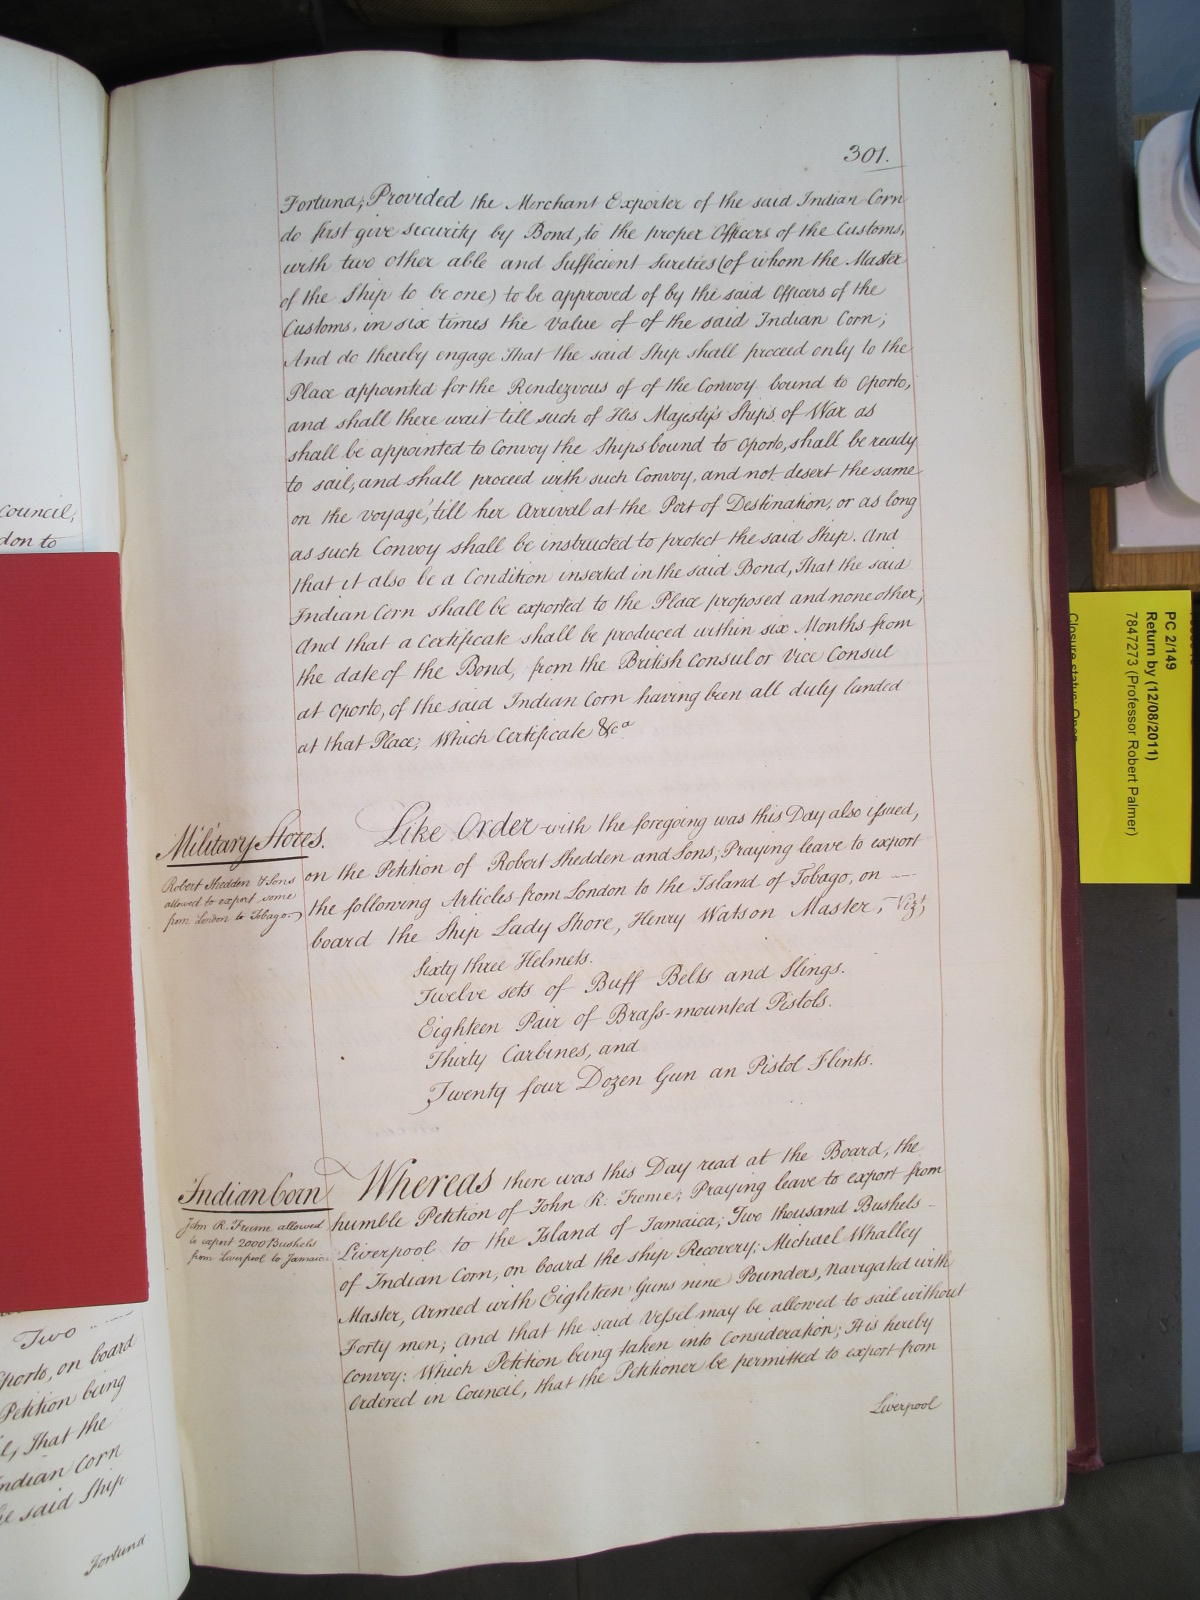 301.
Fortuna; Provided the Merchant Exporter of the said Indian Corn
do first give security by Bond, to the proper Officers of the Customs,
with two other able and Sufficient Sureties (of whom the Master
of the Ship to be one) to be approved of by the said Officers of the
Customs, in six times the Value of of the said Indian Corn;
And do thereby engage That the said Ship shall proceed only to the
Place appointed for the Rendezvous of of the Convoy bound to Oporto,
and shall there wait till such of His Majesty's Ships of War as
shall be appointed to Convoy the Ships bound to Oporto, shall be ready
to sail, and shall proceed with such Convoy, and not desert the same
on the Voyage, till her Arrival at the Port of Destination, or as long
as such Convoy shall be instructed to protect the said Ship. And
that it also be a Condition inserted in the said Bond, That the said
Indian Corn shall be exported to the Place proposed and none other;
And that a Certificate shall be produced within six Months from
the date of the Bond, from the British Consul or Vice Consul
at Oporto, of the said Indian Corn having been all duly landed
at that Place; Which Certificate &ca
Military Stores.
Robert Shedden & Sons
allowed to export some
from London to Tobago.
Like Order with the foregoing was this Day also issued,
on the Petition of Robert Shedden and Sons; Praying leave to export
the following Articles from London to the Island of Tobago, on
board the Ship Lady Shore, Henry Watson Master; Vizt,
Sixty three Helmets.
Twelve sets of Buff Belts and Slings.
Eighteen Pair of Brass-mounted Pistols.
Thirty Carbines, and
Twenty four Dozen Gun an Pistol Flints.
Indian Corn
John R. Freme allowed
to export 2000 Bushels
from Liverpool to Jamaica
Whereas there was this Day read at the Board, the
humble Petition of John R. Freme; Praying leave to export from
Liverpool to the Island of Jamaica; Two thousand Bushels
of Indian Corn, on board the ship Recovery; Michael Whalley
Master, Armed with Eighteen Guns nine Pounders, navigated with
Forty men; And that the said Vessel may be allowed to sail without
Convoy: Which Petition being taken into Consideration; It is hereby
Ordered in Council, that the Petitioner be permitted to export from
Liverpool
Council,
don to
Two
porto, on board
Petition being
l, That the
ndian Corn
e said Ship
Fortuna
PC 2/149
Return by (12/08/2011)
7847273 (Professor Robert Palmer)
Closure status: Open